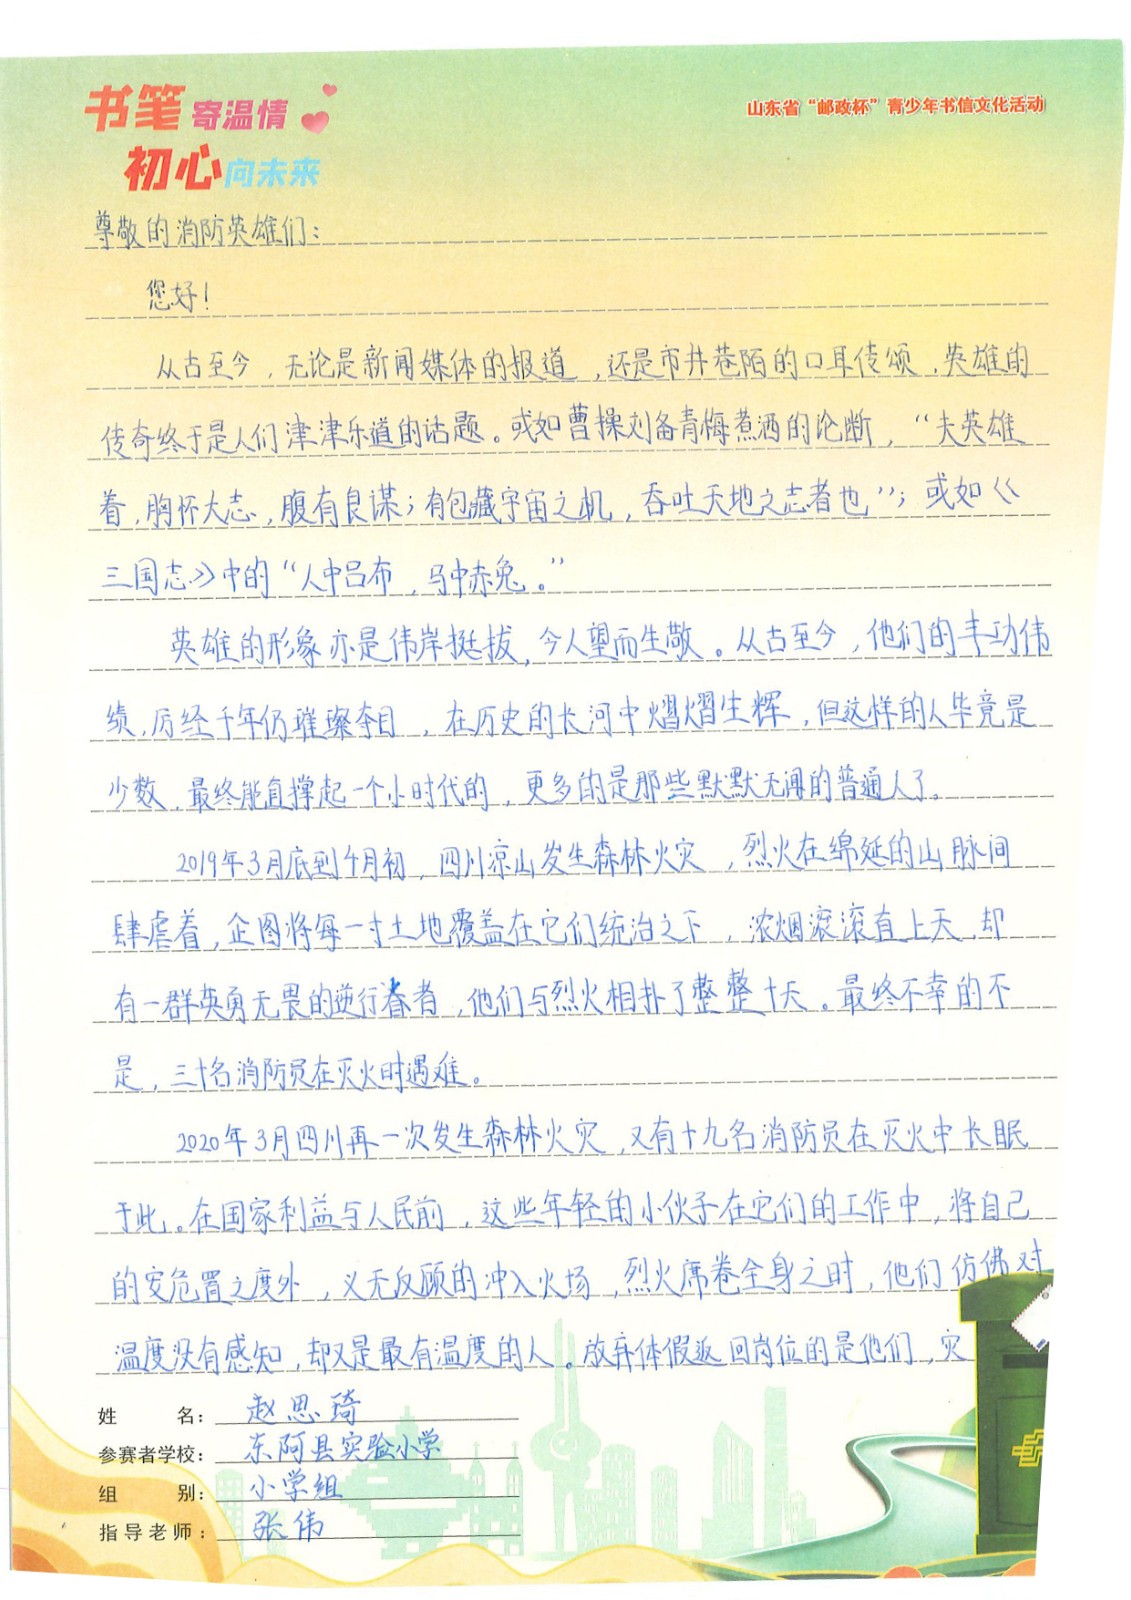 书笔寄温情
初心向未来
山东省“邮政杯”青少年书信文化活动
尊敬的消防英雄们：
您好！
从古至今，无论是新闻媒体的报道，还是市井巷陌的口耳传颂，英雄的
传奇终于是人们津津乐道的话题。或如曹操刘备青梅煮酒的论断，“夫英雄
着，胸怀大志，腹有良谋；有包藏宇宙之机，吞吐天地之志者也”；或如《
三国志》中的“人中吕布，马中赤兔。”
英雄的形象亦是伟岸挺拔，令人望而生敬。从古至今，他们的丰功伟
绩，历经千年仍璀璨夺目，在历史的长河中熠熠生辉，但这样的人毕竟是
少数，最终能直撑起一个小时代的，更多的是那些默默无闻的普通人了。
2019年3月底到4月初，四川凉山发生森林火灾，烈火在绵延的山脉间
肆虐着，企图将每一寸土地覆盖在它们统治之下，浓烟滚滚直上天，却
有一群英勇无畏的逆行者，他们与烈火相扑了整整十天。最终不幸的不
是，三十名消防员在灭火时遇难。
2020年3月四川再一次发生森林火灾，又有十九名消防员在灭火中长眠
于此。在国家利益与人民前，这些年轻的小伙子在它们的工作中，将自己
的安危置之度外，义无反顾的冲入火场，烈火席卷全身之时，他们仿佛对
温度没有感知，却又是最有温度的人。放弃休假返回岗位的是他们，灾
姓名：赵思琦
参赛者学校：东阿县实验小学
组别：小学组
指导老师：张伟